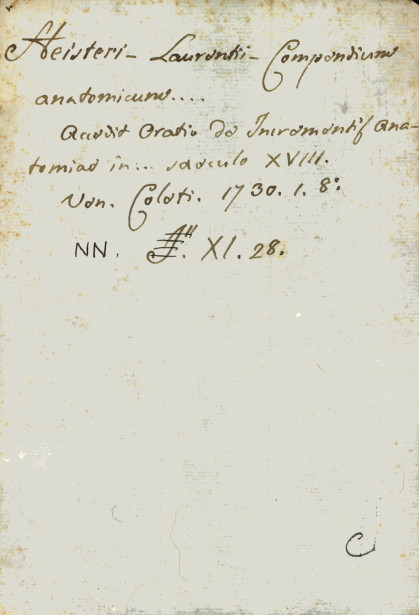 Heisteri - Laurentii - Compendium
anatomicum....
Accedit Oratio de Incrementis Ana-
tomiae in... saeculo XVIII.
Ven. Coleti. 1730. 1. 8º
NN. XI. 28.
C